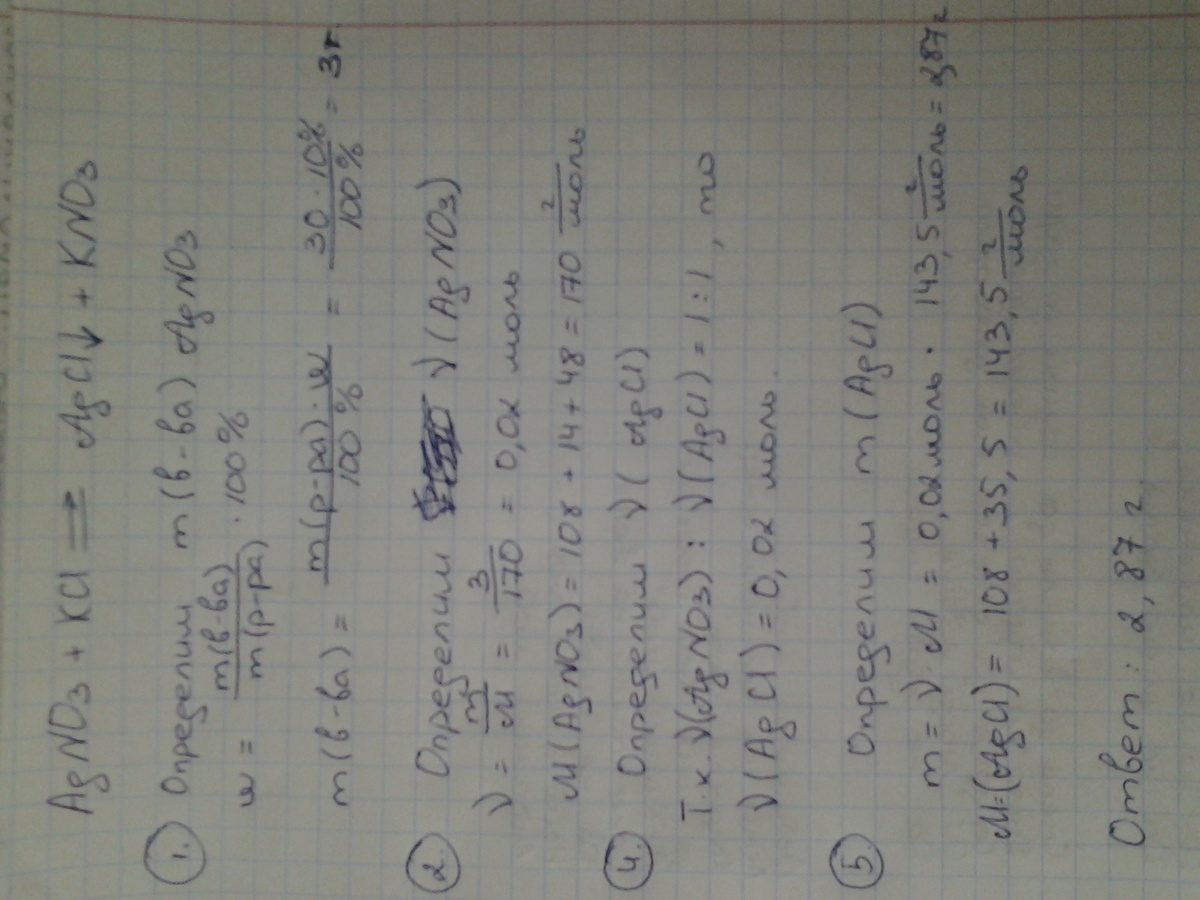 AgNO3 + KCl = AgCl↓ + KNO3
1. Определим m(в-ва) AgNO3
w = m(в-ва) / m(р-ра) · 100%
m(в-ва) = m(р-ра) · w / 100% = 30 · 10% / 100% = 3г
2. Определим ν(AgNO3)
ν = m / M = 3 / 170 = 0,02 моль
M(AgNO3) = 108 + 14 + 48 = 170 г/моль
4. Определим ν(AgCl)
Т.к. ν(AgNO3) : ν(AgCl) = 1:1, то
ν(AgCl) = 0,02 моль.
5. Определим m(AgCl)
m = ν · M = 0,02моль · 143,5 г/моль = 2,87г
M=(AgCl) = 108 + 35,5 = 143,5 г/моль
Ответ: 2,87 г